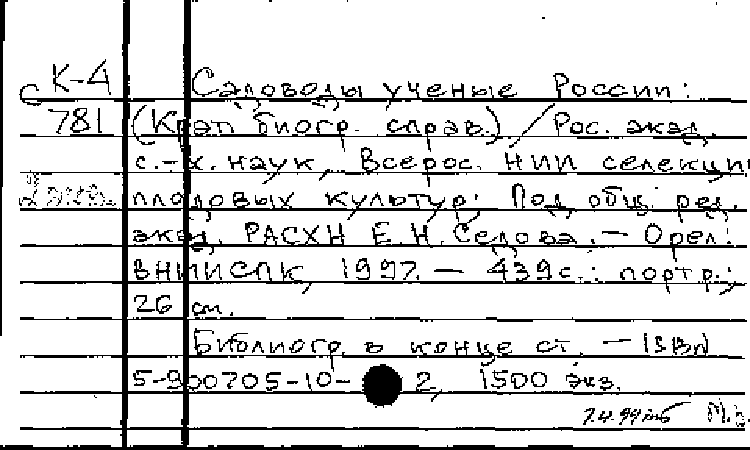 С К-4 Садоводы ученые России:
781 (Крат биогр. справ.) / Рос. акад.
с.-х. наук, Всерос. НИИ селекции
2 экз. плодовых культур; Под общ. ред.
акад. РАСХН Е.Н. Седова. – Орел:
ВНИИСПК, 1997. – 439 с.: портр.;
26 см.
Библиогр. в конце ст. – ISBN
5-900705-10-2, 1500 экз.
7.4.99